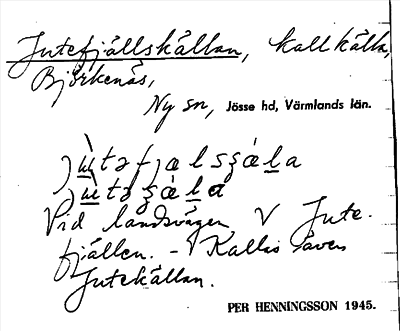 Jutefjällskällan, kallkälla,
Björkenäs,
Ny sn, Jösse hd, Värmlands län.
jὺtəfjælsʒæ̀la
jὺtəʒæ̀la
Vid landsvägen V Jute-
fjällen. - Kallas även
Jutekällan.
PER HENNINGSSON 1945.